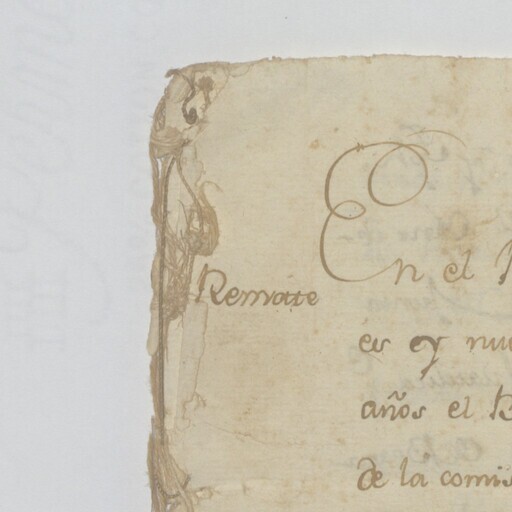 Remate
En el
es oy
años el
de la comis